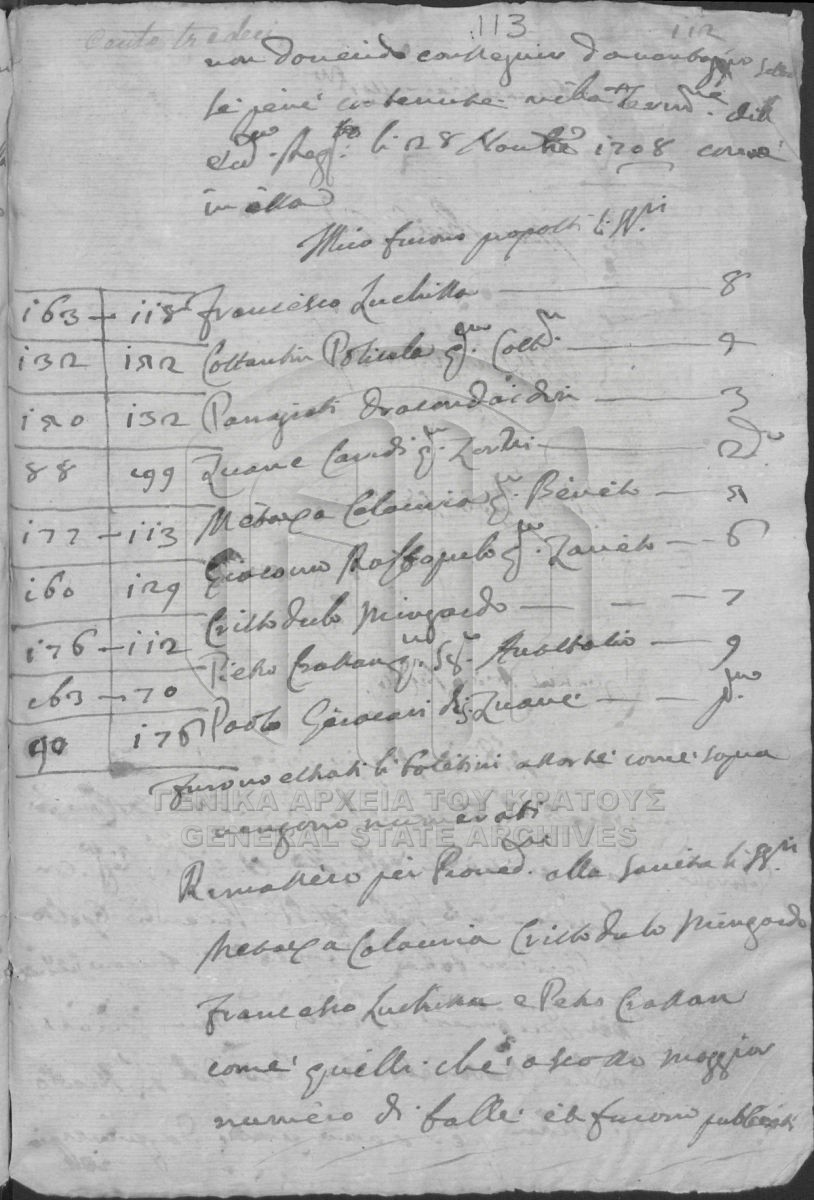 Cento tredeci 113 112
non dovendo conseguir davantaggio
le pene contenute nella Termne
Ecc. Regg.to li 28 Novbre 1708 come
in essa
Mico furono proposti li SS.ri
163 – 118 Francesco Luchissa — 8
132 152 Costantin Policala qm. Cost. — 9
150 132 Panagioti — 3
88 99 Zuane Cavadi qm. Zorzi — 2do
177 – 113 Metaxa Calavria qm. Beneto — 5
160 129 Giacomo Raftopulo qm. Zaneto — 6
176 – 112 Cristodulo Mingardo — 7
163 – 70 Pietro Crassan qm. Sr. Anastasio — 9
90 176 Paolo Geracari di Zuane — pmo
Furono estrati li boletini a sorte come sopra
vengono numerati
Rimassero per Proved.ri alla Sanità li SS.ri
Metaxa Calavria Cristodulo Mingardo
Francesco Luchissa e Pietro Crassan
come quelli che a scosso maggior
numero di balle et furono publicati
ΓΕΝΙΚΑ ΑΡΧΕΙΑ ΤΟΥ ΚΡΑΤΟΥΣ
GENERAL STATE ARCHIVES